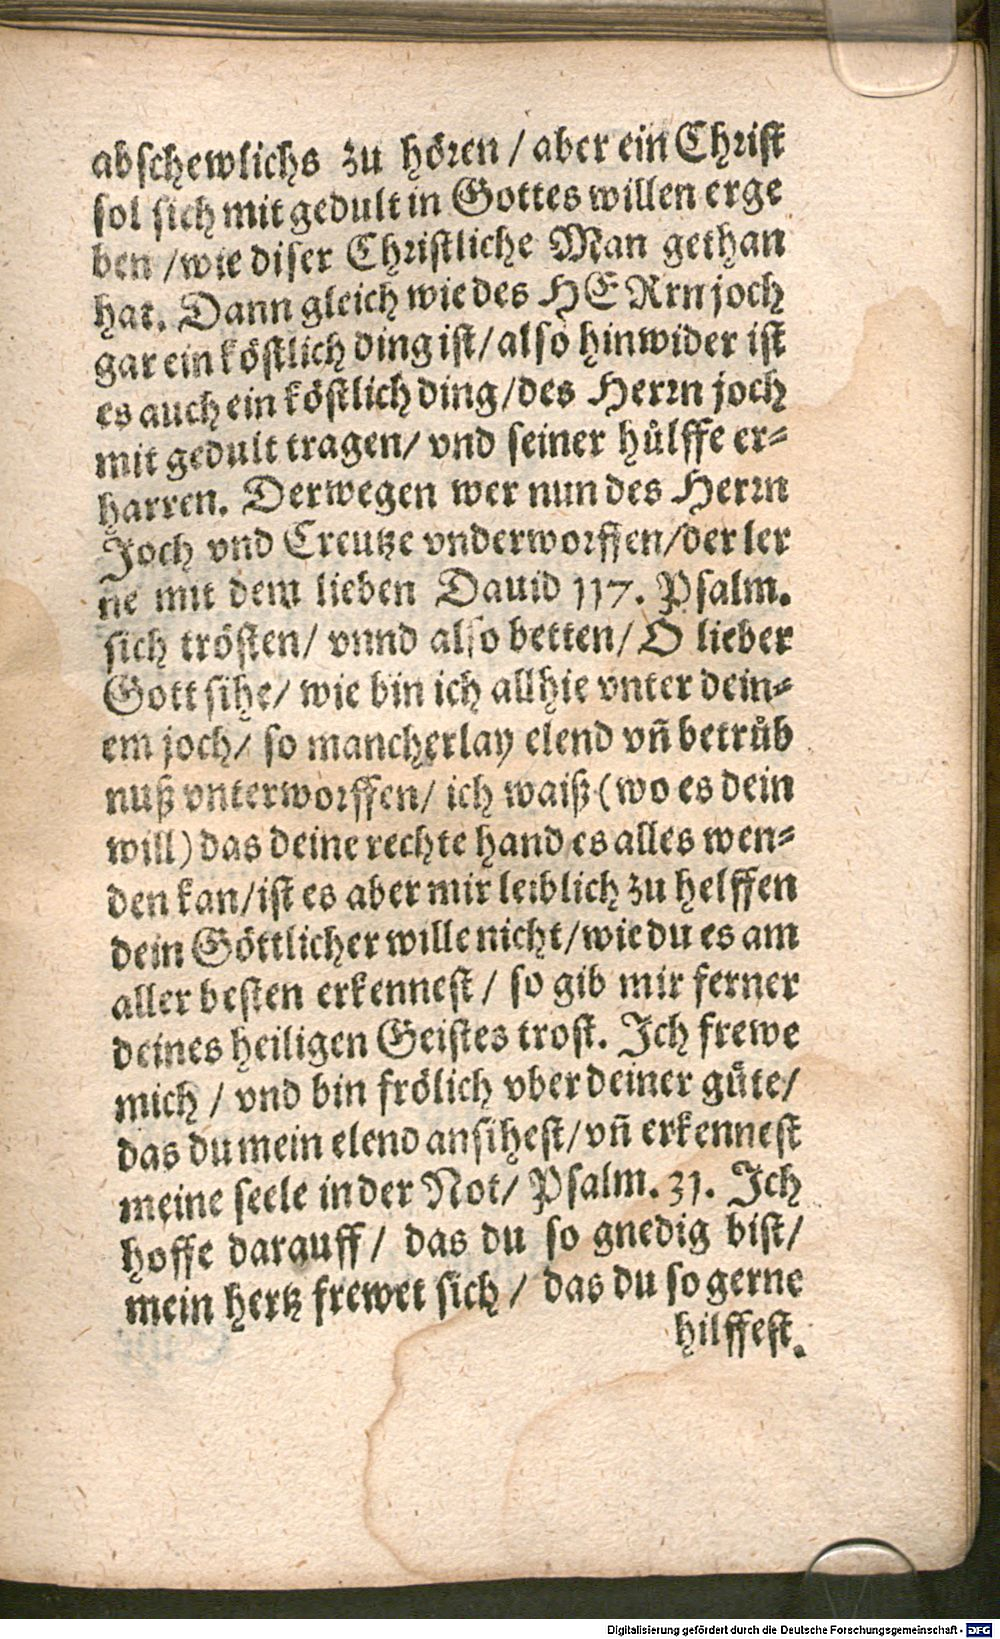 abschewlichs zu hören / aber ein Christ
sol sich mit gedult in Gottes willen erge
ben / wie diser Christliche Man gethan
hat. Dann gleich wie des HERrn joch
gar ein köstlich ding ist / also hinwider ist
es auch ein köstlich ding / des Herrn joch
mit gedult tragen / vnd seiner hůlffe er-
harren. Derwegen wer nun des Herrn
Joch vnd Creutze vnderworffen / der ler
ñe mit dem lieben Dauid 117. Psalm.
sich trösten / vnnd also betten / O lieber
Gott sihe / wie bin ich allhie vnter dein-
em joch / so mancherlay elend vñ betrůb
nuß vnterworffen / ich waiß (wo es dein
will) das deine rechte hand es alles wen-
den kan / ist es aber mir leiblich zu helffen
dein Göttlicher wille nicht / wie du es am
aller besten erkennest / so gib mir ferner
deines heiligen Geistes trost. Ich frewe
mich / vnd bin frölich vber deiner gůte /
das du mein elend ansihest / vñ erkennest
meine seele in der Not / Psalm. 31. Ich
hoffe darauff / das du so gnedig bist /
mein hertz frewet sich / das du so gerne
hilffest.
Digitalisierung gefördert durch die Deutsche Forschungsgemeinschaft - DFG